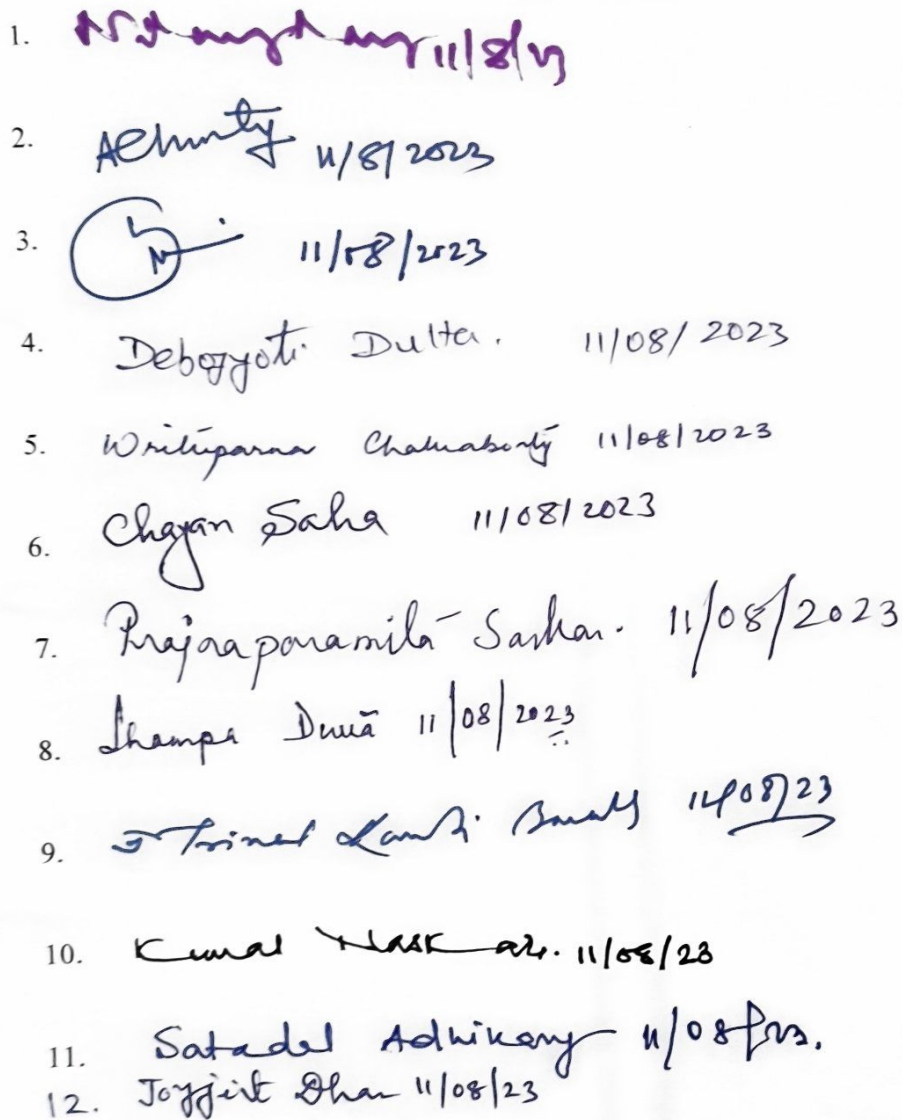 1. 11/8/23
2. 11/8/2023
3. 11/08/2023
4. Debojyoti Dutta. 11/08/2023
5. Writuparna Chakraborty 11/08/2023
6. Chayan Saha 11/08/2023
7. Prajnaparamita Sarkar. 11/08/2023
8. Shampa 11/08/2023
9. Kanti 11/08/23
10. Kunal Naskar. 11/08/23
11. Satadal Adhikary 11/08/23.
12. Joyjit Dhar 11/08/23